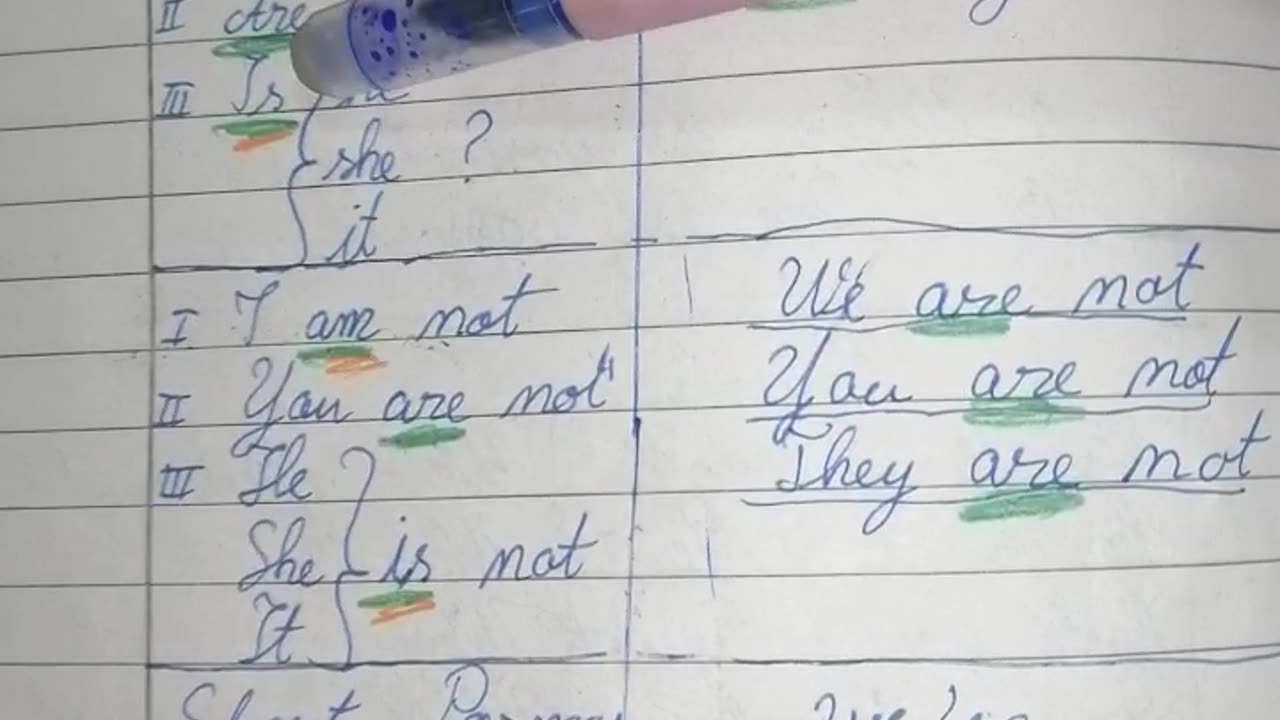 II Are
III Is
she ?
it
I I am not We are not
II You are not You are not
III He They are not
She is not
It
Short Forms